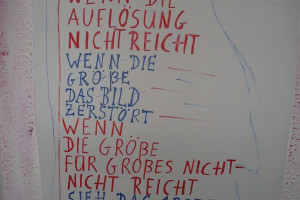 WENN DIE
AUFLÖSUNG
NICHT REICHT
WENN DIE
GRÖßE
DAS BILD
ZERSTÖRT
WENN
DIE GRÖBE
FÜR GROBES NICHT-
NICHT REICHT
SIEH DAS